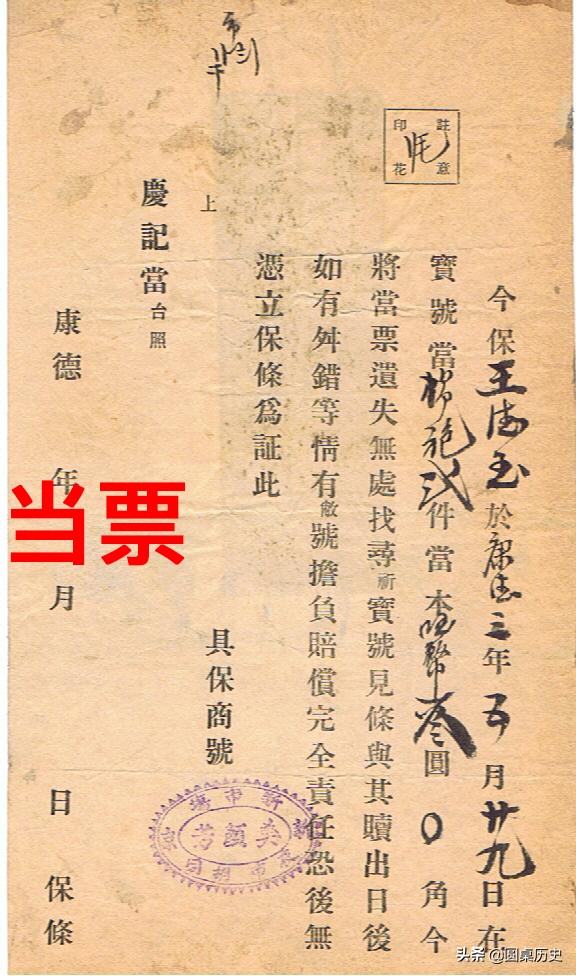 註意
印花
今保王玉於康德三年五月廿九日在
寶號當棉袍貳件當本國幣叁圓0角今
將當票遺失無處找尋祈寶號見條與其贖出日後
如有舛錯等情有敝號擔負賠償完全責任恐後無
憑立保條爲証此
上
慶記當台照
具保商號
新市場
康德 年 月 日 保條
当票
头条 @圆桌历史